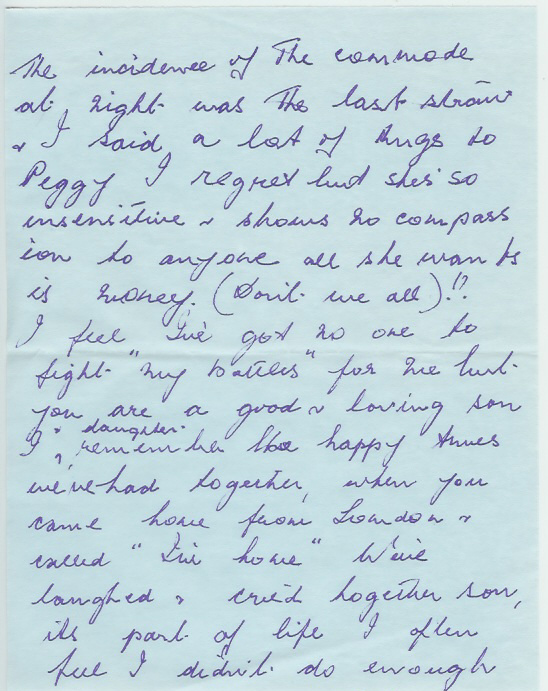 The incidence of The commode
at night was The last straw
& I said a lot of things to
Peggy I regret but she's so
insensitive & shows no compass
ion to anyone all she wants
is money. (Don't we all)!!
I feel I've got no one to
fight "my battles" for me but
you are a good & loving son
& daughter.
I remember the happy times
we've had together, when you
came home from London &
called "I'm home" We've
laughed & cried together son,
its part of life I often
feel I didn't do enough